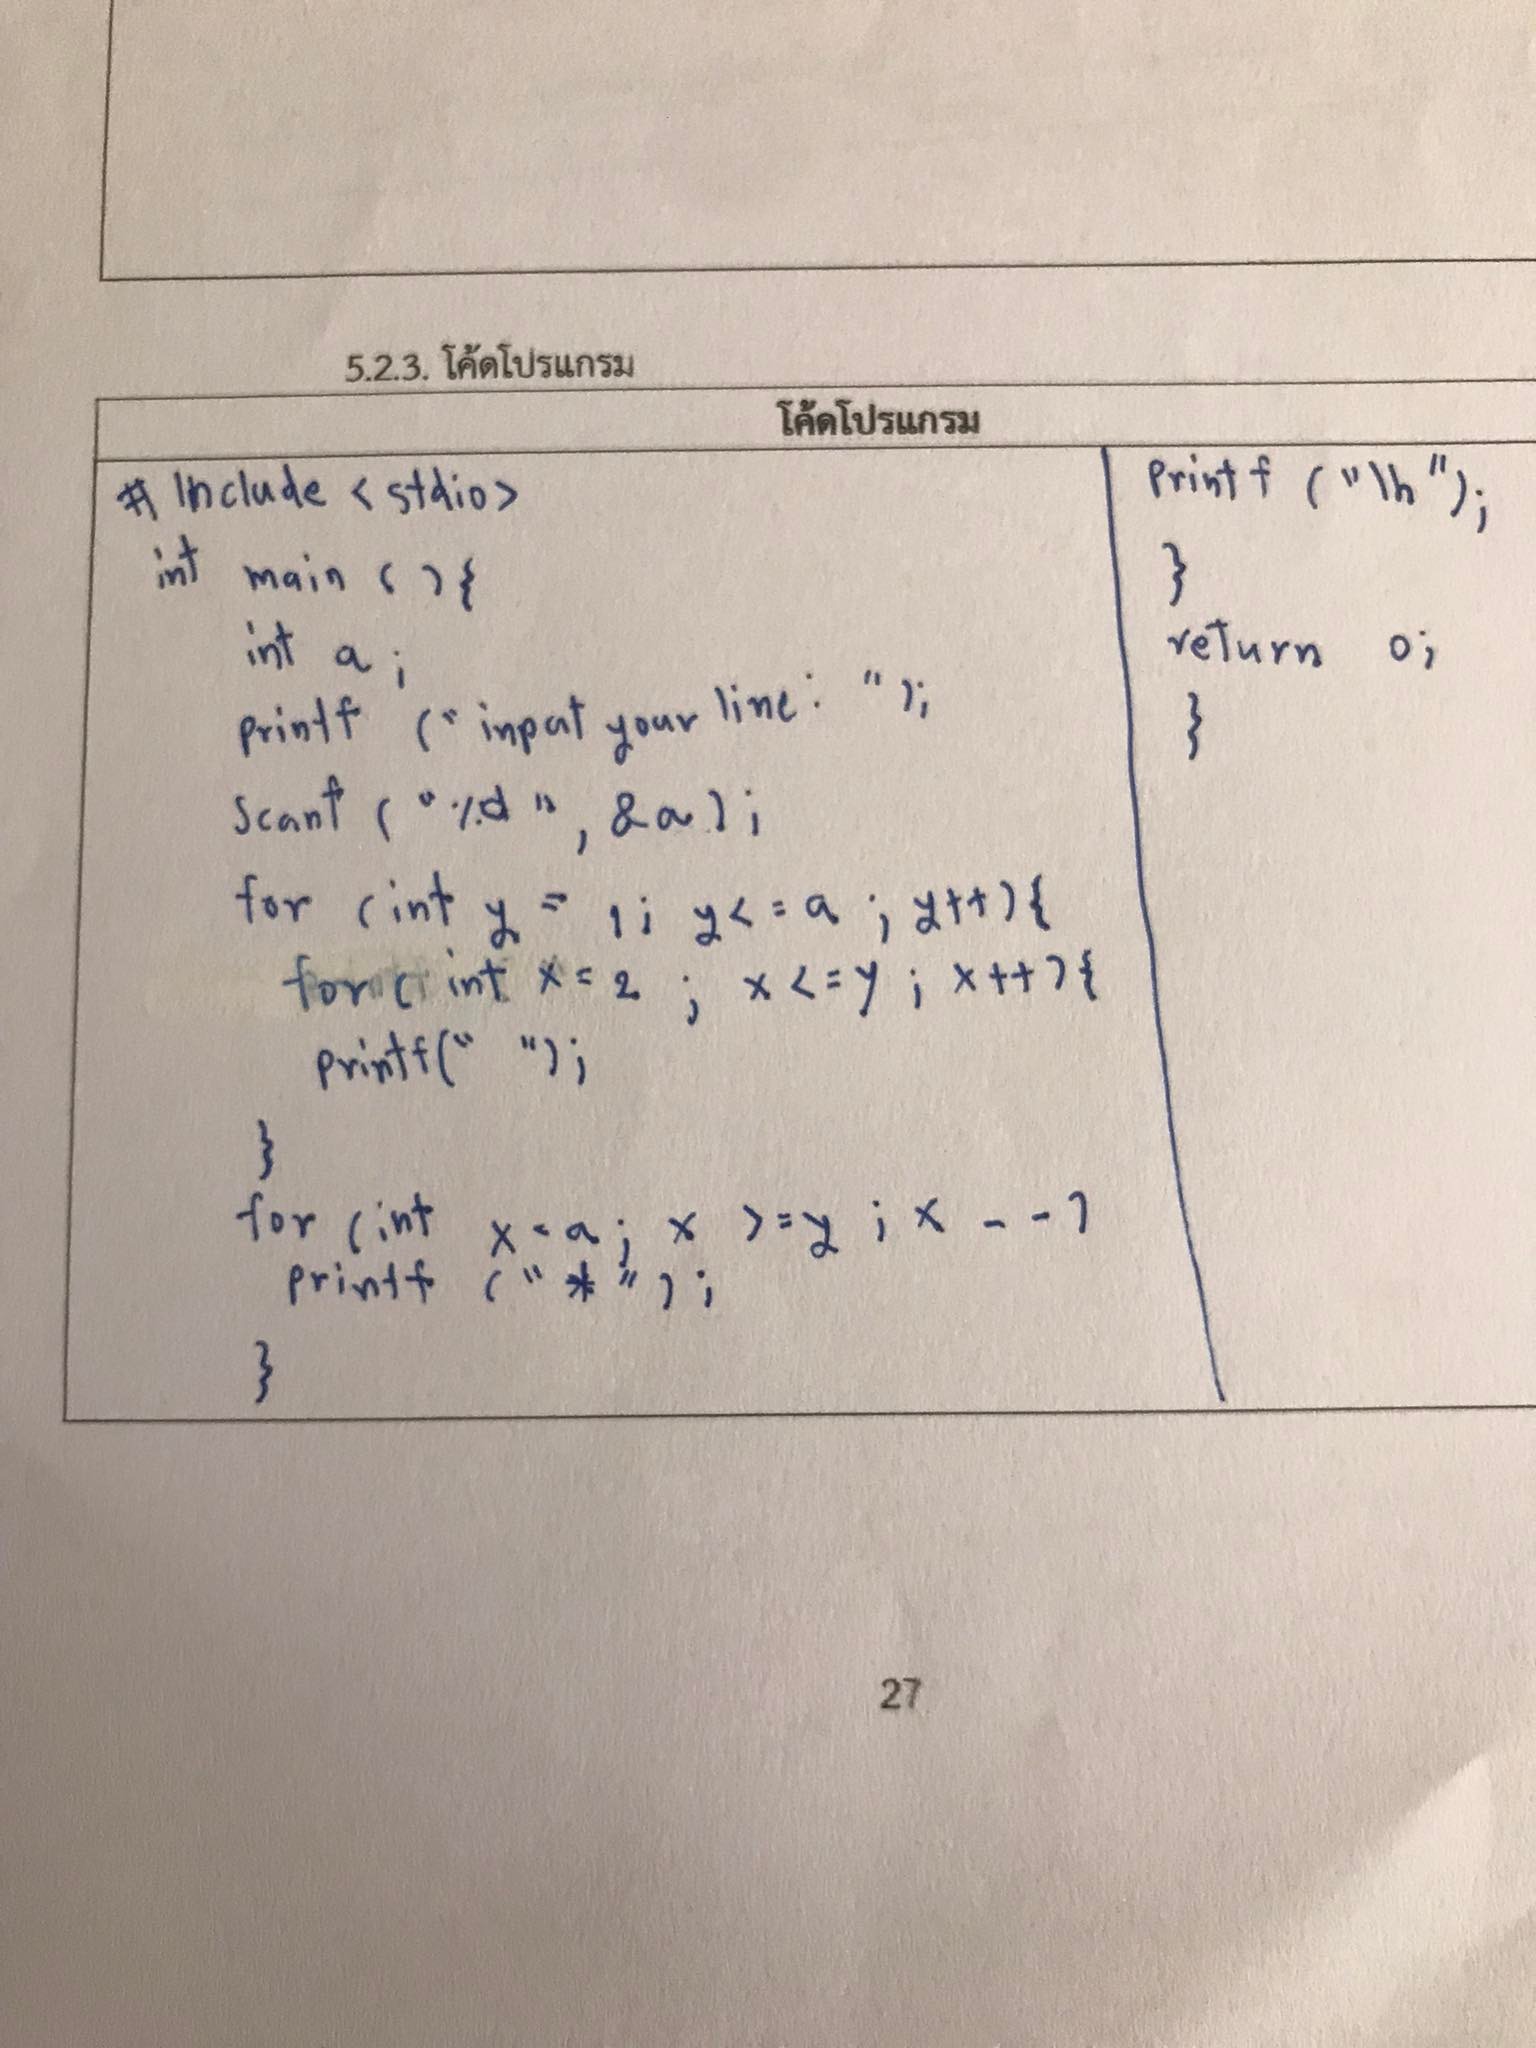 5.2.3. โค้ดโปรแกรม
โค้ดโปรแกรม
# Include <stdio>
int main ( ) {
int a ;
printf (" input your line: " );
Scanf ( "%d ", &a ) ;
for ( int y = 1; y <= a ; y++ ) {
for ( int x = 2 ; x <= y ; x++ ) {
printf(" ");
}
for ( int x = a ; x >= y ; x - - )
printf ( " * " ) ;
}
Printf ( "\n" );
}
return 0;
}
27